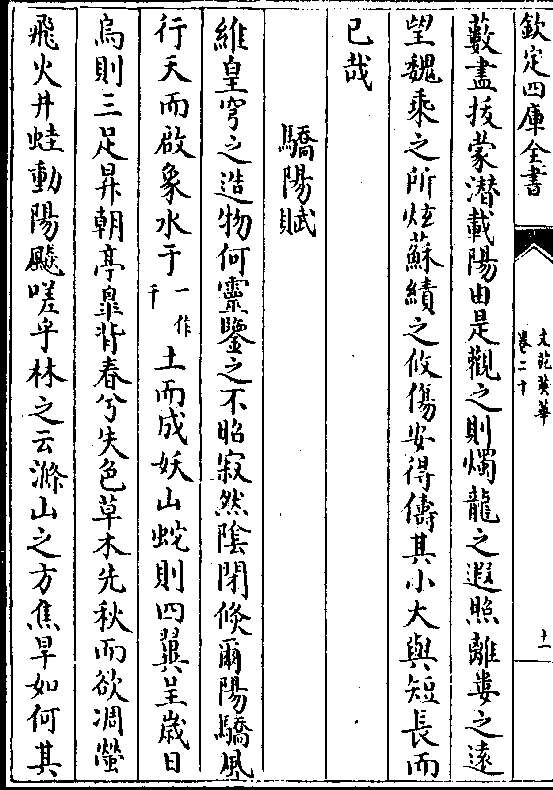 欽定四庫全書
文苑英華
卷二十
十一
藪盡扳蒙潜載陽由是觀之則燭龍之遐照離婁之遠
望魏乘之所炫蘇績之攸傷安得儔其小大與短長而
已哉
驕陽賦
維皇穹之造物何靈鑒之不昭寂然陰閉倐爾陽驕風
行天而啟象水于一作千土而成妖山蛇則四翼呈歲日
烏則三足昇朝亭臯背春兮失色草木先秋而欲凋螢
飛火井蛙動陽飈嗟乎林之云滌山之方焦旱如何其